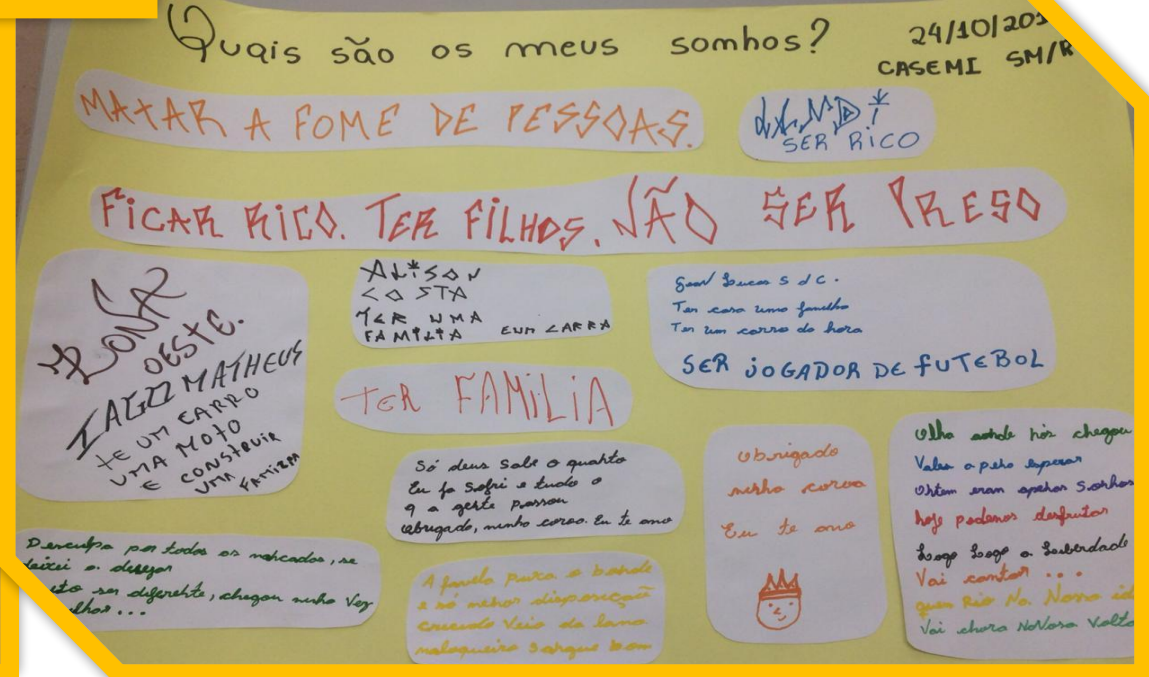 Quais são os meus somhos?
24/10/201
CASEMI SM/R
MATAR A FOME DE PESSOAS.
SER RICO
FICAR RICO. TER FILHOS. NÃO SER PRESO
ZONA
OESTE.
IAGO MATHEUS
TE UM CARRO
UMA MOTO
E CONSTRUIR
UMA FAMILIA
ALISON
COSTA
TER UMA
FAMILIA EUM CARRA
Lucas S d C.
Ter casa uma familha
Ter um carro da hora
SER JOGADOR DE FUTEBOL
TER FAMILIA
Só deus sabe o quanto
Eu ja sofri e tudo o
q a gente passou
obrigado, minha coroa. Eu te amo
Obrigado
minha coroa
Eu te amo
Olha aonde nós chegou
Valeu a pena esperar
Ontem eram apenas sonhos
hoje podemos desfrutar
Logo Logo a Liberdade
Vai cantar ...
quem Rio No. Nosso
Vai chora NoNosa Volta
Desculpa por todos os mancadas, se
deixei a desejar
ser diferente, chegou minha Vez
...
A favela pura o bonde
e só menor disposição
crescido Veio da lama
maloqueiro Sangue bom